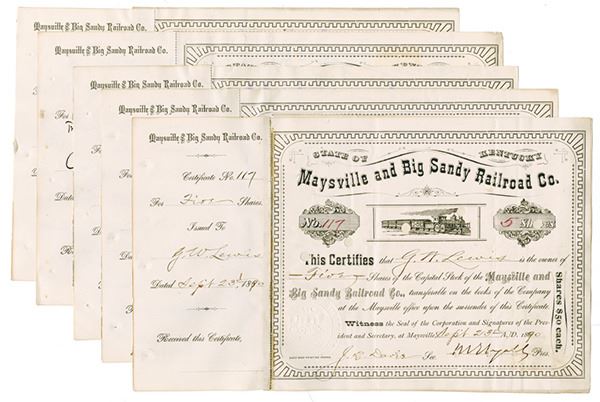 Maysville & Big Sandy Railroad Co.
Maysville & Big Sandy Railroad Co.
Maysville & Big Sandy Railroad Co.
Maysville & Big Sandy Railroad Co.
Maysville & Big Sandy Railroad Co.
Certificate No. 117
For Five Shares.
Issued To
G. W. Lewis
Dated Sept 23d 1890
Received this Certificate,
STATE OF KENTUCKY
Maysville and Big Sandy Railroad Co.
No. 117
5 SHARES
This Certifies that G. W. Lewis is the owner of
Five Shares of the Capital Stock of the Maysville and
Big Sandy Railroad Co., transferable on the books of the Company
at the Maysville office upon the surrender of this Certificate.
Witness the Seal of the Corporation and Signatures of the Pres-
ident and Secretary, at Maysville, Sept 23d A.D. 1890
Sec Pres.
Shares $50 each.